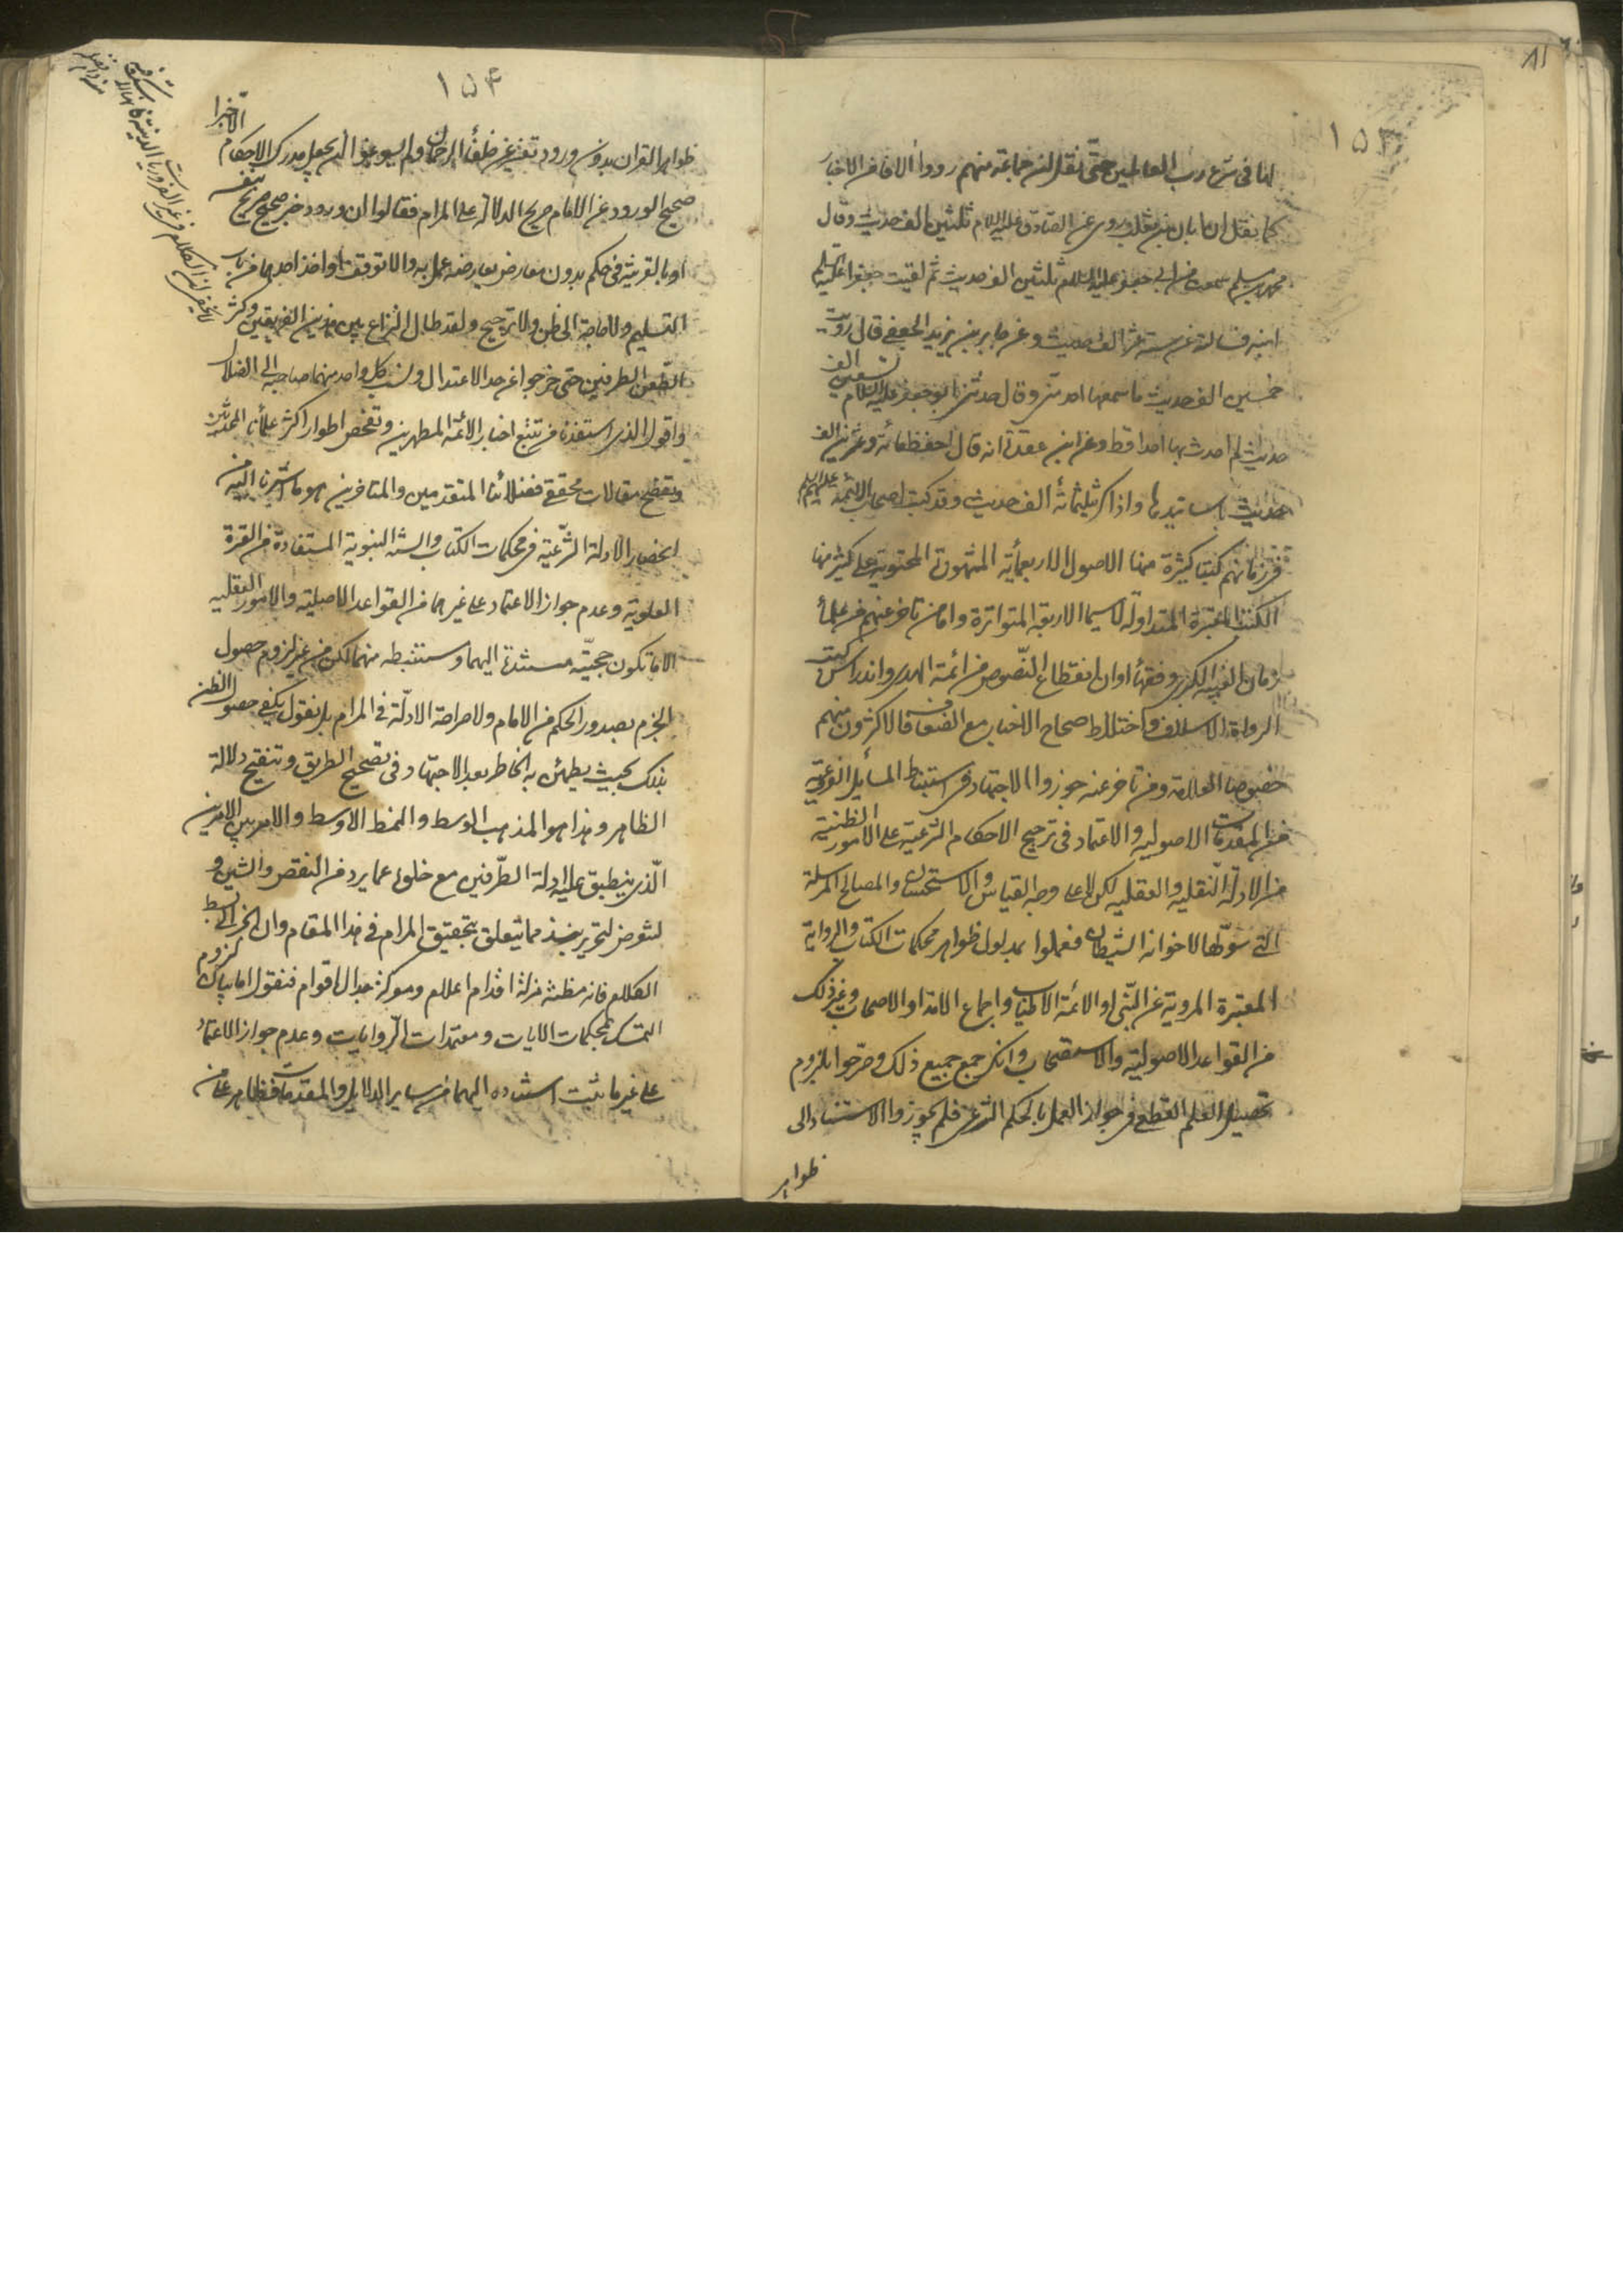 ١٥٣
لنا فى شرع رب العالمين حتى نقل ان جماعة منهم رووا الافا من الاخبار
كما نقل ان ابان بن تغلب روى عن الصادق عليه السلام ثلثين الف حديث وقال
محمد بن مسلم سمعت من ابى جعفر عليه السلام ثلثين الف حديث ثم لقيت جعفرا عليه السلم
ابنه فسالته عن ستة عشر الف حديث وعن جابر بن يزيد الجعفى قال رويت
خمسين الف حديث ما سمعها احد منى وقال حدثنى ابو جعفر عليه السلام تسعين الف
حديث لم احدث بها احدا قط وعن ابن عقدة انه قال احفظ مائة وعشرين الف
حديث باسانيدها واذاكر بثلثمائة الف حديث وقد كتب اصحاب الائمة عليهم السلم
فى زمانهم كتبا كثيرة منها الاصول الاربعمأية المشهورة المحتوية على كثير منها
الكتب المعتبرة المتداولة لاسيما الاربعة المتواترة واما من تاخر عنهم من علمأ
زمان الغيبة الكبرى وفقهأ اوان انقطاع النصوص من ائمة الهدى واندراس كتب
الرواة الاسلاف واختلاط صحاح الاخبار مع الضعاف فالاكثرون منهم
خصوصا العلامة ومن تاخر عنه جوزوا الاجتهاد فى استنباط المسأيل الفرعية
من المقدمات الاصولية والاعتماد فى ترجيح الاحكام الشرعية على الامور الظنية
من الادلة النقلية والعقلية لكن لا على وجه القياس والاستحسان والمصالح المرسلة
التى سولها لاخوانه الشيطان فعملوا بمدلول ظواهر محكمات الكتاب والرواية
المعتبرة المروية عن النبى او الائمة الاطياب واجماع الامة او الاصحاب وغير ذلك
من القواعد الاصولية والاستصحاب وانكر جمع جميع ذلك وصرحوا بلزوم
تحصيل العلم القطعى فى جواز العمل بالحكم الشرعى فلم يجوزوا الاستناد الى
ظواهر
١٥٤
ظواهر القران بدون ورود تفسير عن خلفأ الرحمان ولم يسوغوا ان يجعل مدرك الاحكام الا خبرا
صحيح الورود عن الامام صريح الدلالة على المرام فقالوا ان ورود خبر صحيح صريح بنفسه
او بالقرينة فى حكم بدون معارض يعارضه عمل به والا توقف او اخذ احدهما من باب
التسليم ولا حاجة الى ظن ولا ترجيح ولقد طال النزاع بين هذين الفريقين وكثر
الطعن من الطرفين حتى خرجوا عن حد الاعتدال ونسب كل واحد منهما صاحبه الى الضلال
واقول الذى استفدنا من تتبع اخبار الائمة المطهرين وتفحص اطوار اكثر علمأنا المحدثين
وتصفح مقالات محققى فضلائنا المتقدمين والمتاخرين هو ما اشرنا اليه من
انحصار الادلة الشرعية فى محكمات الكتاب والسنة النبوية المستفادة من العترة
العلوية وعدم جواز الاعتماد على غيرهما من القواعد الاصلية والامور العقلية
الا ما تكون حجيته مستندة اليهما ومستنبطه منهما لكن من غير لزوم حصول
الجزم بصدور الحكم من الامام ولا صراحة الادلة فى المرام بل نقول يكفى حصول الظن
بذلك بحيث يطمئن به الخاطر بعد الاجتهاد فى تصحيح الطريق وتنقيح دلالة
الظاهر وهذا هو المذهب الوسط والنمط الاوسط والامر بين الامرين
الذى ينطبق عليه ادلة الطرفين مع خلوه عما يرد من النقص والشين و
لنتعرض لتحرير نبذ مما يتعلق بتحقيق المرام فى هذا المقام وان انجر الى بسط
الكلام فانه مظنة مزلة اقدام اعلام ومعركة جدال اقوام فنقول اما بيان لزوم
التمسك بمحكمات الايات ومعتمدات الروايات وعدم جواز الاعتماد
على غير ما ثبت استناده اليهما من ساير الدلايل والمقدمات فظاهر على من